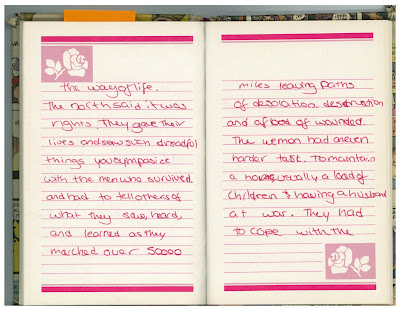 the way of life.
The north said it was
rights. They gave their
lives and saw such dreadful
things you sympoice
with the men who survived
and had to tell others of
what they saw, heard,
and learned as they
marched over 50000
miles leaving paths
of desolation, destruction
and of wounded.
The women had a even
harder task. To maintain
a home, usually a load of
children & having a husband
at war. They had
to cope with the